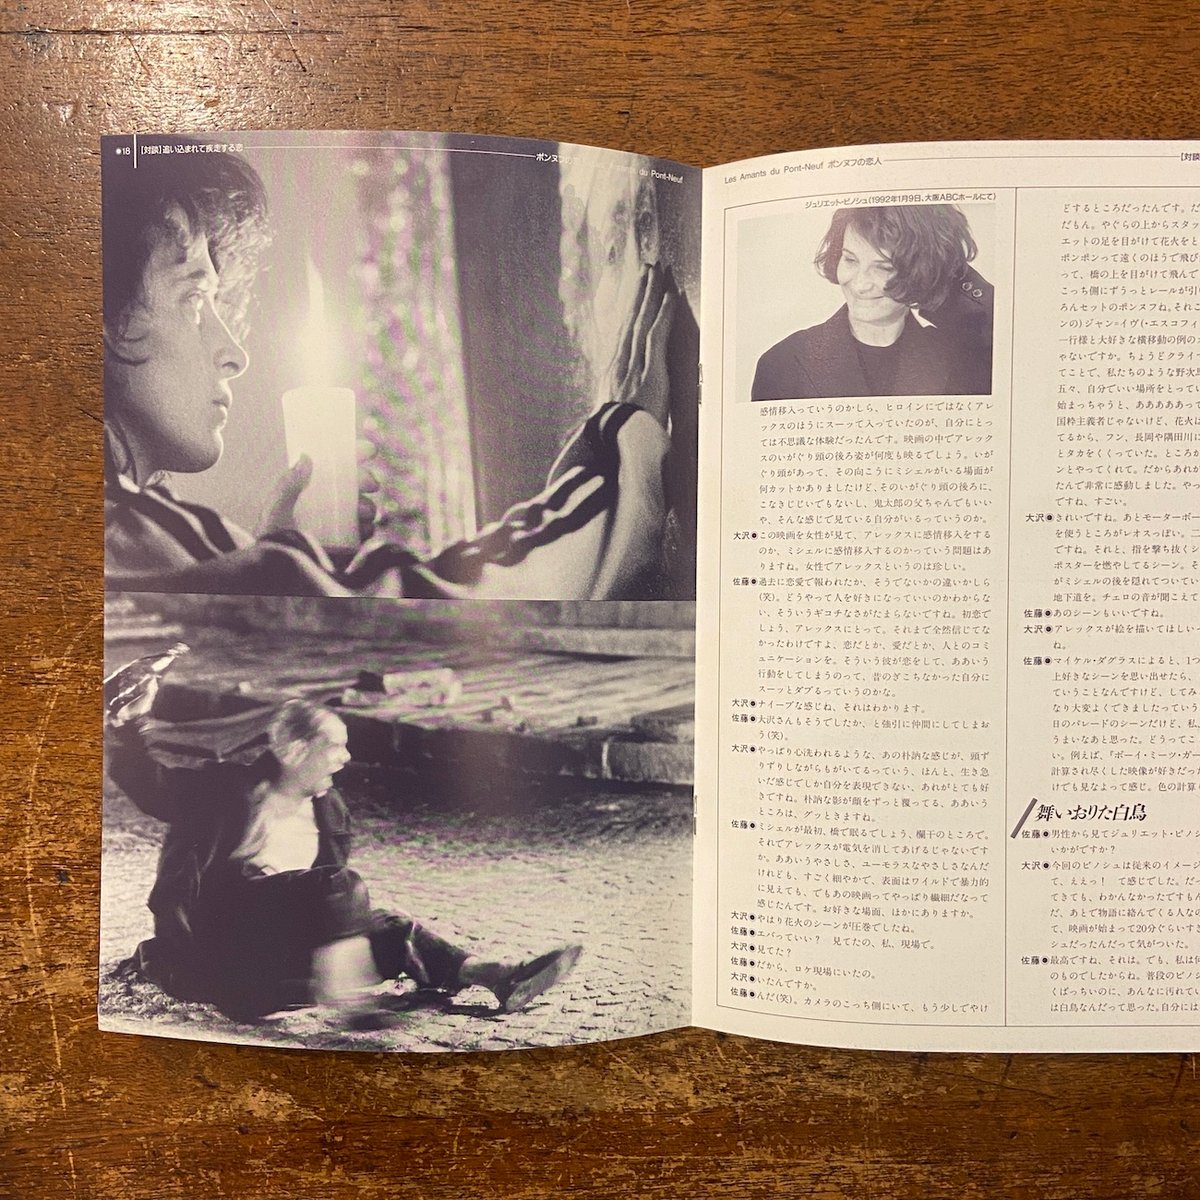 18 [対談]追い込まれて疾走する恋
ポンヌフの
du Pont-Neuf
Les Amants du Pont-Neuf ポンヌフの恋人
[対談
ジュリエット・ビノシュ(1992年1月9日、大阪ABCホールにて)
感情移入っていうのかしら、ヒロインにではなくアレ
ックスのほうにスーッて入っていたのが、自分にとっ
ては不思議な体験だったんです。映画の中でアレック
スのいがぐり頭の後ろ姿が何度も映るでしょう。いが
ぐり頭があって、その向こうにミシェルがいる場面が
何カットかありましたけど、そのいがぐり頭の後ろに、
こなきじじいでもないし、鬼太郎の父ちゃんでもいい
や、そんな感じで見ている自分がいるっていうのか。
大沢●この映画を女性が見て、アレックスに感情移入をする
のか、ミシェルに感情移入するのかっていう問題はあ
りますね。女性でアレックスというのは珍しい。
佐藤●過去に恋愛で報われたか、そうでないかの違いかしら
(笑)。どうやって人を好きになっていいのかわからな
い、そういうギコチなさがたまらないですね。初恋で
しょう、アレックスにとって。それまで全然信じてな
かったわけですよ、恋だとか、愛だとか、人とのコミ
ュニケーションを。そういう彼が恋をして、ああいう
行動をしてしまうのって、昔のぎこちなかった自分に
スーッとダブるっていうのかな。
大沢●ナイーブな感じね、それはわかります。
佐藤●大沢さんもそうでしたか、と強引に仲間にしてしまお
う(笑)。
大沢●やっぱり心洗われるような、あの朴訥な感じが、頭ず
りずりしながらもがいてるっていう、ほんと、生き急
いだ感じでしか自分を表現できない、あれがとても好
きですね。朴訥な影が顔をずっと覆ってる、ああいう
ところは、グッときますね。
佐藤●ミシェルが最初、橋で眠るでしょう、欄干のところで。
それでアレックスが電気を消してあげるじゃないです
か。ああいうやさしさ、ユーモラスなやさしさなんだ
けれども、すごく細やかで、表面はワイルドで暴力的
に見えても、でもあの映画ってやっぱり繊細だなって
感じたんです。お好きな場面、ほかにありますか。
大沢●やはり花火のシーンが圧巻でしたね。
佐藤●エバっていい? 見てたの、私、現場で。
大沢●見てた?
佐藤●だから、ロケ現場にいたの。
大沢●いたんですか。
佐藤●んだ(笑)。カメラのこっち側にいて、もう少しでやけ
どするところだったんです。だ
だもん。やぐらの上からスタッ
エットの足を目がけて花火をと
ポンポンって遠くのほうで飛び
って、橋の上を目がけて飛んで
こっち側にずうっとレールが引い
ろんセットのポンヌフね。それこ
ンの)ジャン=イヴ(・エスコフィ
一行様と大好きな横移動の例のカ
ゃないですか。ちょうどクライマ
てことで、私たちのような野次馬
五々、自分でいい場所をとってい
始まっちゃうと、ああああああって
国粋主義者じゃないけど、花火は
てるから、フン、長岡や隅田川に
とタカをくくっていた。ところが
ンとやってくれて。だからあれが
たんで非常に感動しました。やっ
ですね、すごい。
大沢●きれいですね。あとモーターボー
を使うところがレオスっぽい。二
ですね。それと、指を撃ち抜くシ
ポスターを燃やしてるシーン。そ
がミシェルの後を隠れてついてい
地下道を。チェロの音が聞こえて
佐藤●あのシーンもいいですね。
大沢●アレックスが絵を描いてほしいっ
ね。
佐藤●マイケル・ダグラスによると、1つ
上好きなシーンを思い出せたら、
ていうことなんですけど、してみ
なり大変よくできましたっていう
日のパレードのシーンだけど、私、
うまいなあと思った。どうってこ
い。例えば、『ボーイ・ミーツ・ガー
計算され尽くした映像が好きだった
けでも見なよって感じ。色の計算も
舞いおりた白鳥
佐藤●男性から見てジュリエット・ビノシ
いかがですか?
大沢●今回のビノシュは従来のイメージ
て、ええっ! て感じでした。だっ
てきても、わかんなかったですもん
だ、あとで物語に絡んでくる人な
て、映画が始まって20分ぐらいすぎ
シュだったんだって気がついた。
佐藤●最高ですね、それは。でも、私は何
のものでしたからね。普段のビノシ
くばっちいのに、あんなに汚れてい
は白鳥なんだって思った。自分には